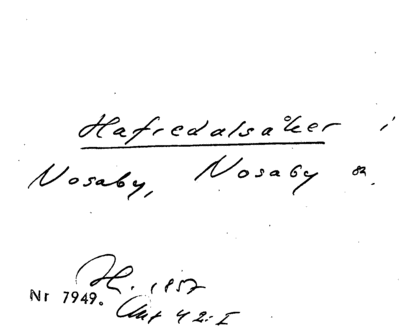 Hafredalsåker i
Nosaby, Nosaby sn.
H. 1957
Nr 7949. Akt 42: I